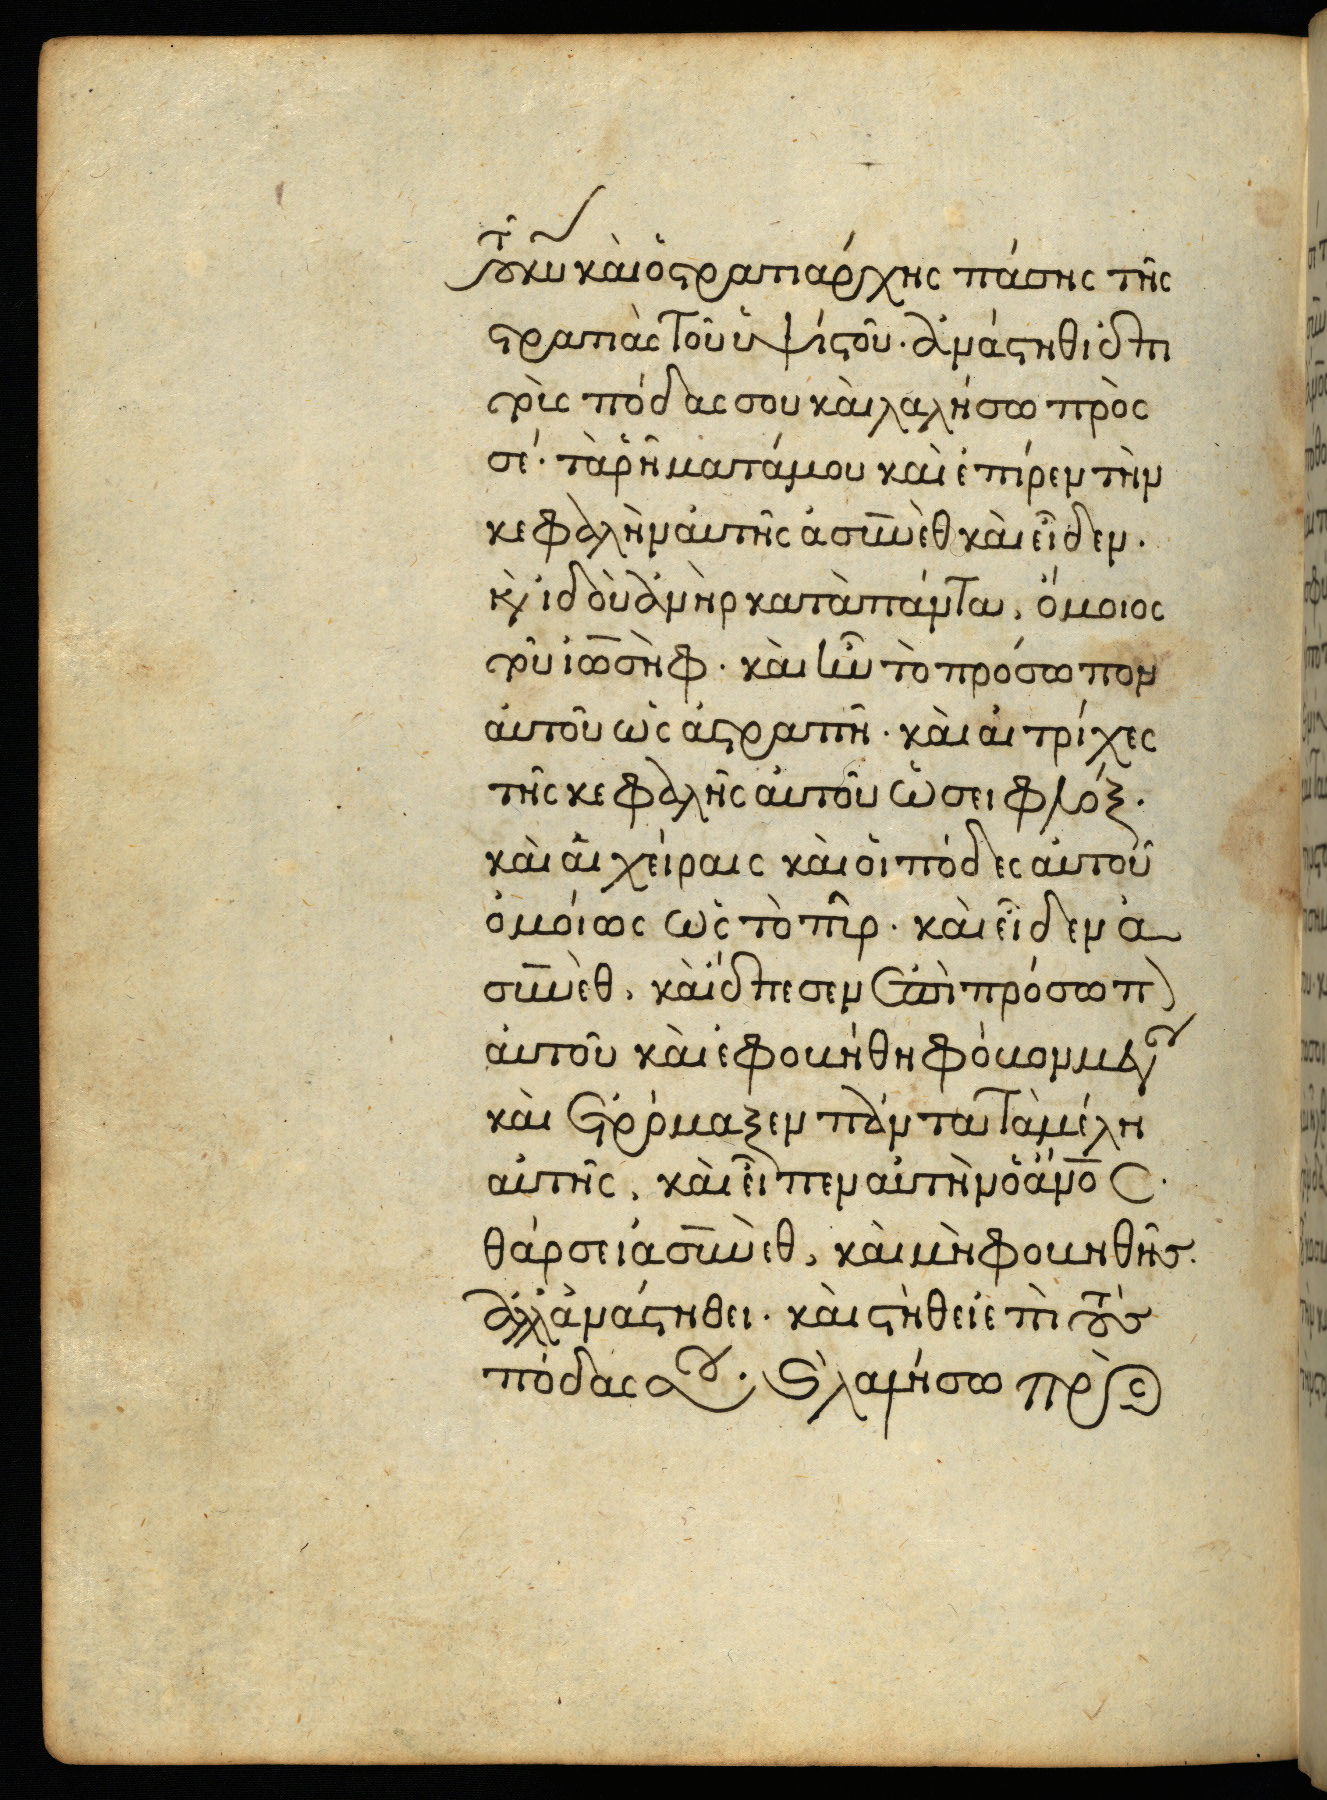 τοῦ κυ καὶ ὁ στρατιάρχης πάσης τῆς
στρατιὰς τοῦ ὑψίστου · ἀνάστηθι ἐπὶ
τοὺς πόδας σου καὶ λαλήσω πρὸς
σέ · τὰ ῥῆματά μου καὶ ἐπῖρεν τὴν
κεφαλὴν ἀυτῆς ἀσυνὲθ καὶ εἶδεν ·
κὶ ἰδοὺ ἀνὴρ κατὰ πάντα, ὅμοιος
τοῦ ἰωσὴφ · καὶ ἦν τὸ πρόσωπον
ἀυτοῦ ὡς ἀστραπῆ · καὶ αἱ τρίχες
τῆς κεφαλῆς ἀυτοῦ ὥσει φλόξ ·
καὶ αἱ χείραις καὶ οἱ πόδες ἀυτοῦ
ὁμοίως ὡς τὸ πῦρ · καὶ εἶδεν ἀ
συνὲθ, καὶ ἔπεσεν ἐπὶ πρόσωπ
ἀυτοῦ καὶ ἐφοβήθη φόβον μέγ
καὶ ἐτρόμαξεν πάντα τὰ μέλη
αὐτῆς, καὶ εἶπεν αὐτὴν ὁ ἄνος ·
θάρσει ἀσυνὲθ, καὶ μὴ φοβηθῆς ·
ἀλλ ἀνάστηθει · καὶ στήθει ἐπὶ τοὺς
πόδας σου · καὶ λαλήσω πρὸς σε